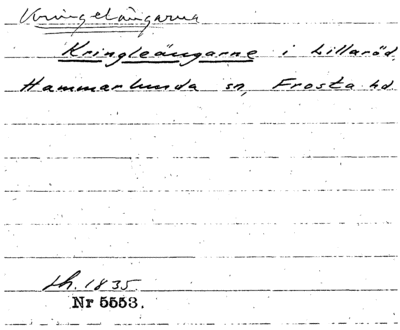 Kringelängarna
Kringleängarne i Lillaröd,
Hammarlunda sn, Frosta hd.
Lh. 1835
Nr 5553.